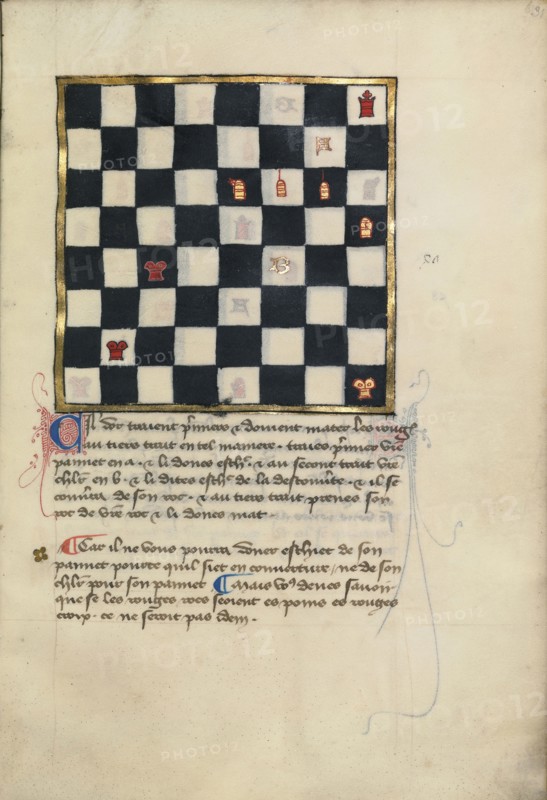 A
B
Cil dor traient p̃miers ⁊ doivent mater les roug̃
au tiers trait en tel maniere . traies p̃mier vr̃e
paonnet en a . ⁊ li dones esch̃ . ⁊ au secont trait vr̃e
chl̃r en b . ⁊ li dites esch̃ de la descouv̾te . ⁊ il se
couvr̃a de son roc . ⁊ au tiers trait prenes son
roc de vr̃e roc ⁊ li dones mat .
¶ Car il ne vous pourra doner eschiec de son
paonnet pource quil siet en couverture / ne de son
chl̃r pour son paonnet ¶ Mais voꝰ deves savoir
que se les rouges rocs seoient es poins es rouges
crois . ce ne seroit pas idem .
PHOTO12